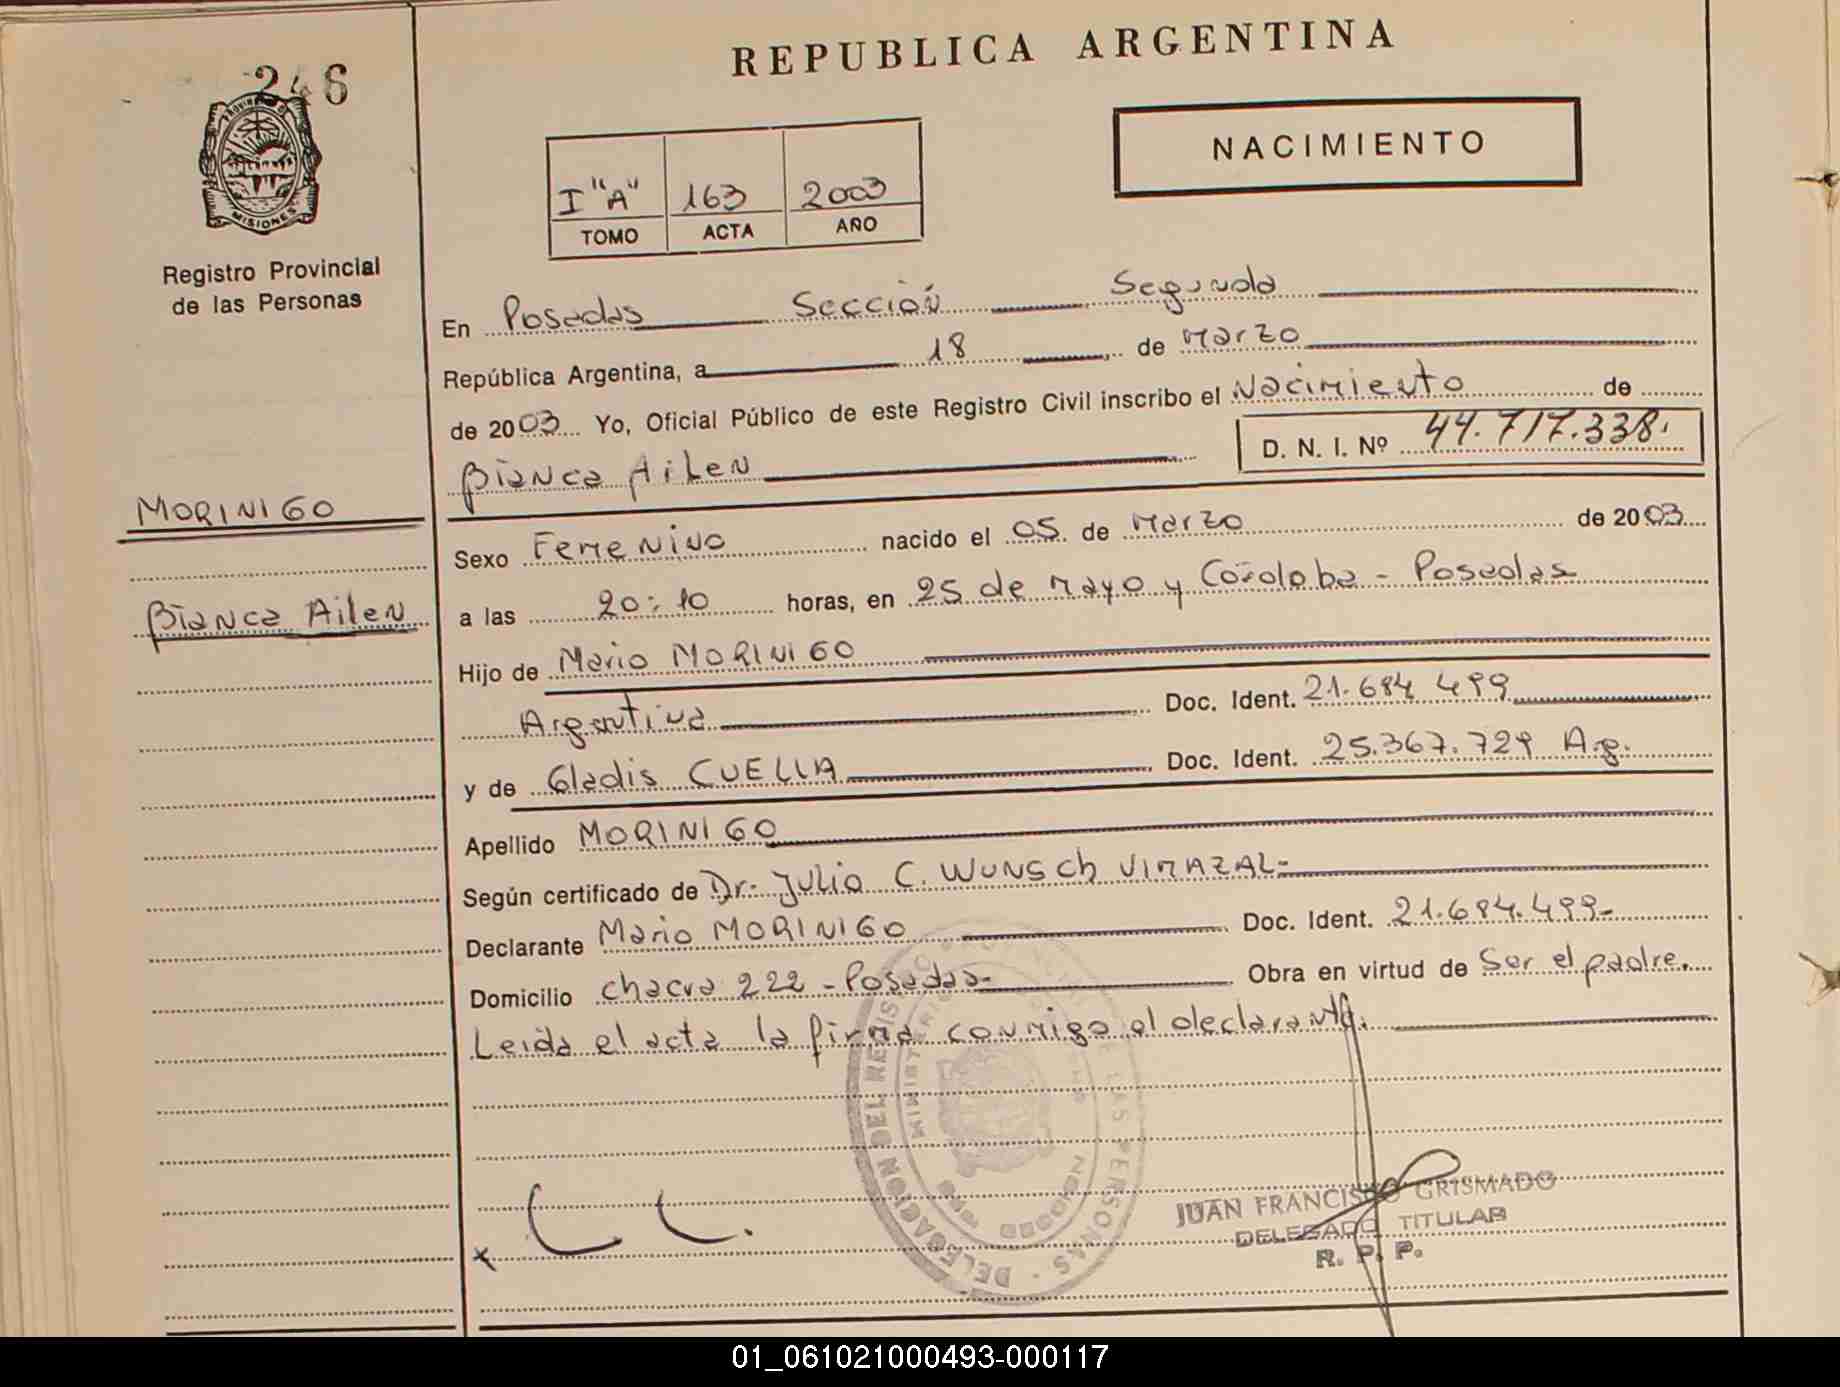 246
REPUBLICA ARGENTINA
NACIMIENTO
PROVINCIA DE
MISIONES
Registro Provincial
de las Personas
I "A" 163 2003
TOMO ACTA AÑO
En Posadas Sección Segunda
República Argentina, a 18 de Marzo
de 2003 Yo, Oficial Público de este Registro Civil inscribo el Nacimiento de
D. N. I. Nº 44.717.338.
Bianca Ailen
MORINIGO
Bianca Ailen
Sexo Femenino nacido el 05 de Marzo de 2003
a las 20:10 horas, en 25 de mayo y Córdoba - Posadas
Hijo de Mario MORINIGO
Argentina Doc. Ident. 21.684 499
y de Gladis CUELLA Doc. Ident. 25.367.729 Arg.
Apellido MORINIGO
Según certificado de Dr. Julio C. WUNSCh VIRAZAL-
Declarante Mario MORINIGO Doc. Ident. 21.684.499-
Domicilio chacra 222 - Posadas- Obra en virtud de Ser el padre.
Leida el acta la firma conmigo el declarante.
DELEGACION DEL REGISTRO DE LAS PERSONAS
MINISTERIO
x
JUAN FRANCISCO GRISMADO
DELEGADO TITULAR
R. P. P.
01_061021000493-000117